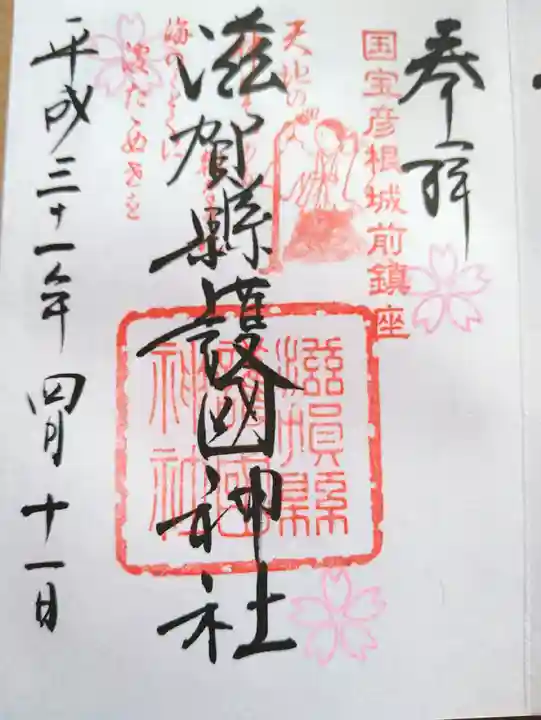 奉拝
国宝彦根城前鎮座
滋賀縣護國神社
滋賀縣
護國
神社
天地の
平成三十一年四月十一日